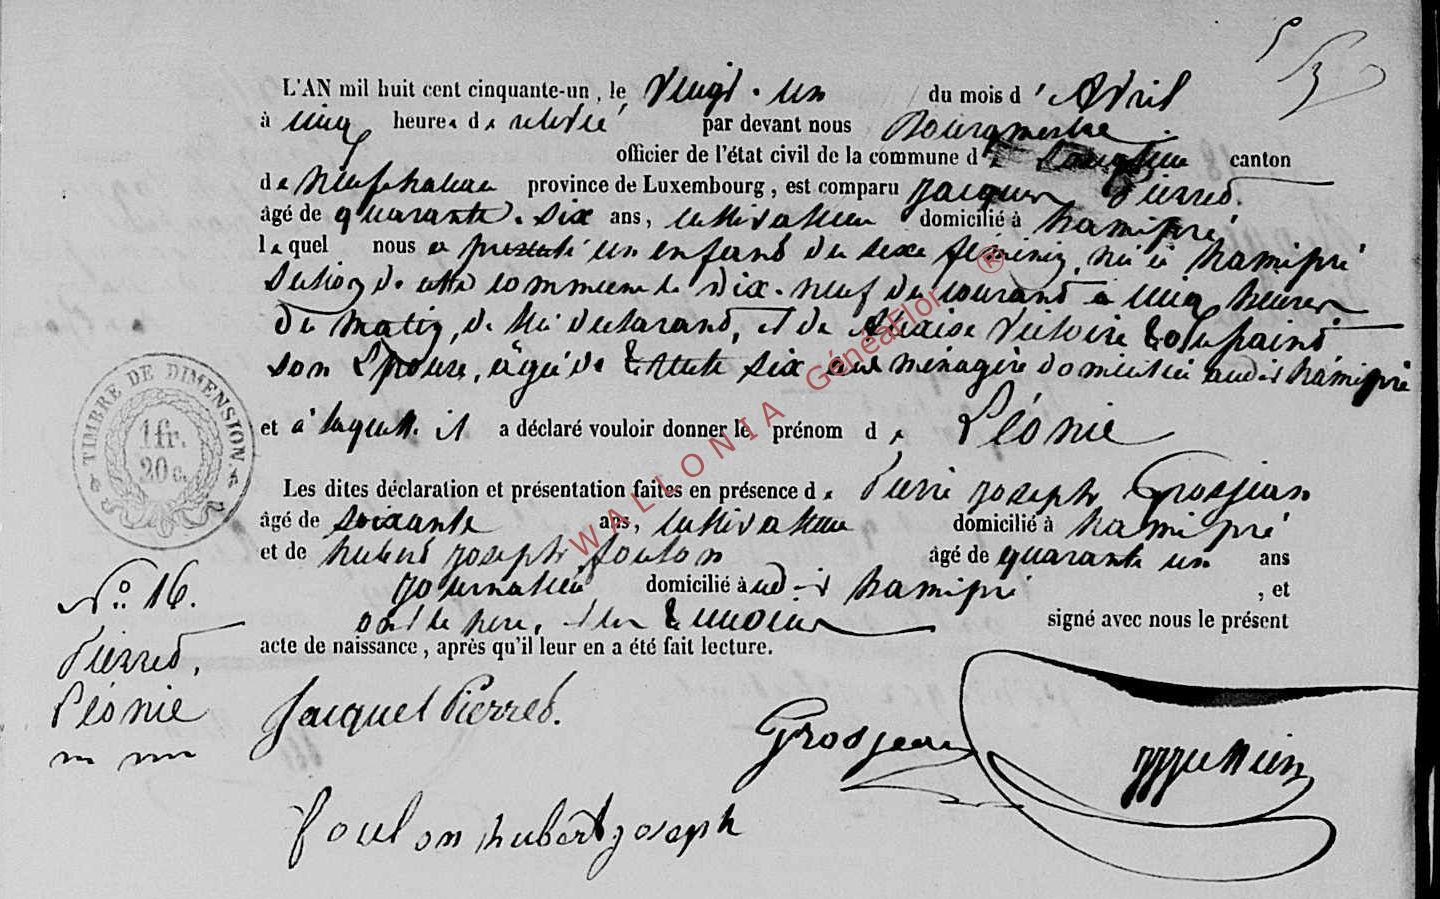 L'AN mil huit cent cinquante-un, le Vingt-un du mois d'Avril
à cinq heures de relevé par devant nous Bourgmestre
officier de l'état civil de la commune de Longlier canton
de Neufchateau province de Luxembourg, est comparu Jacques Pierred.
âgé de quarante-six ans, cultivateur domicilié à hamipré
lequel nous a présenté un enfant du sexe féminin, né à hamipré
section de cette commune le dix-neuf du courant à cinq heures
du matin, de lui déclarant, et de Victoire
son Epouse, agée de trente six ans ménagère domiciliée audit hamipré
et à laquelle il a déclaré vouloir donner le prénom de Léonie
Les dites déclaration et présentation faites en présence de Pierre joseph Grosjean
âgé de soixante ans, cultivateur domicilié à hamipré
et de hubert joseph foulon âgé de quarante un ans
journalier domicilié audit hamipré, et
ont le père, et les témoins signé avec nous le présent
acte de naissance, après qu'il leur en a été fait lecture.
TIMBRE DE DIMENSION
1 fr.
20 c.
No. 16.
Pierred,
Léonie
Jacques Pierred.
Grosjean
foulon hubert joseph
WALLONIA GénéaFlor ®